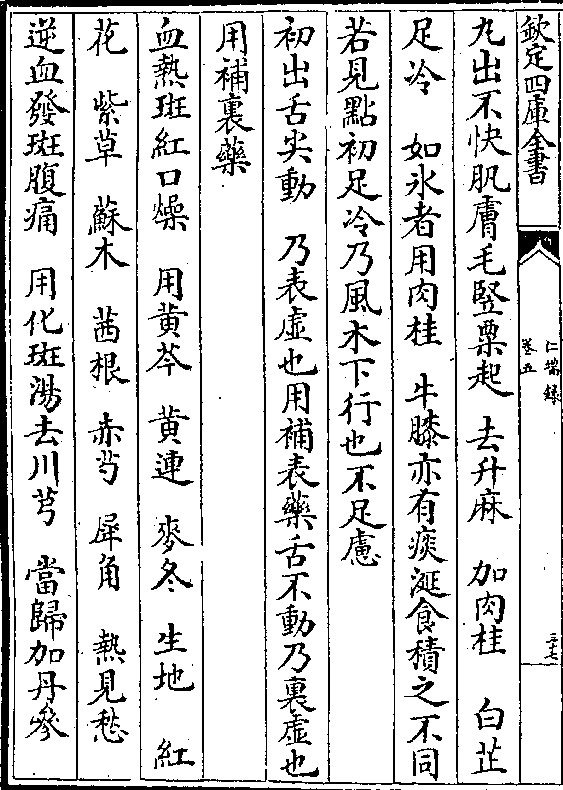 欽定四庫全書
仁端錄
卷五
三十七
九出不快肌膚毛竪粟起　去升麻　加肉桂　白芷
足冷　如氷者用肉桂　牛膝亦有痰涎食積之不同
若見點初足冷乃風木下行也不足慮
初出舌尖動　乃表虛也用補表藥舌不動乃裏虛也
用補裏藥
血熱斑紅口燥　用黄芩　黄連　麥冬　生地　紅
花　紫草　蘇木　茜根　赤芍　犀角　熱見愁
逆血發斑腹痛　用化斑湯去川芎　當歸加丹參